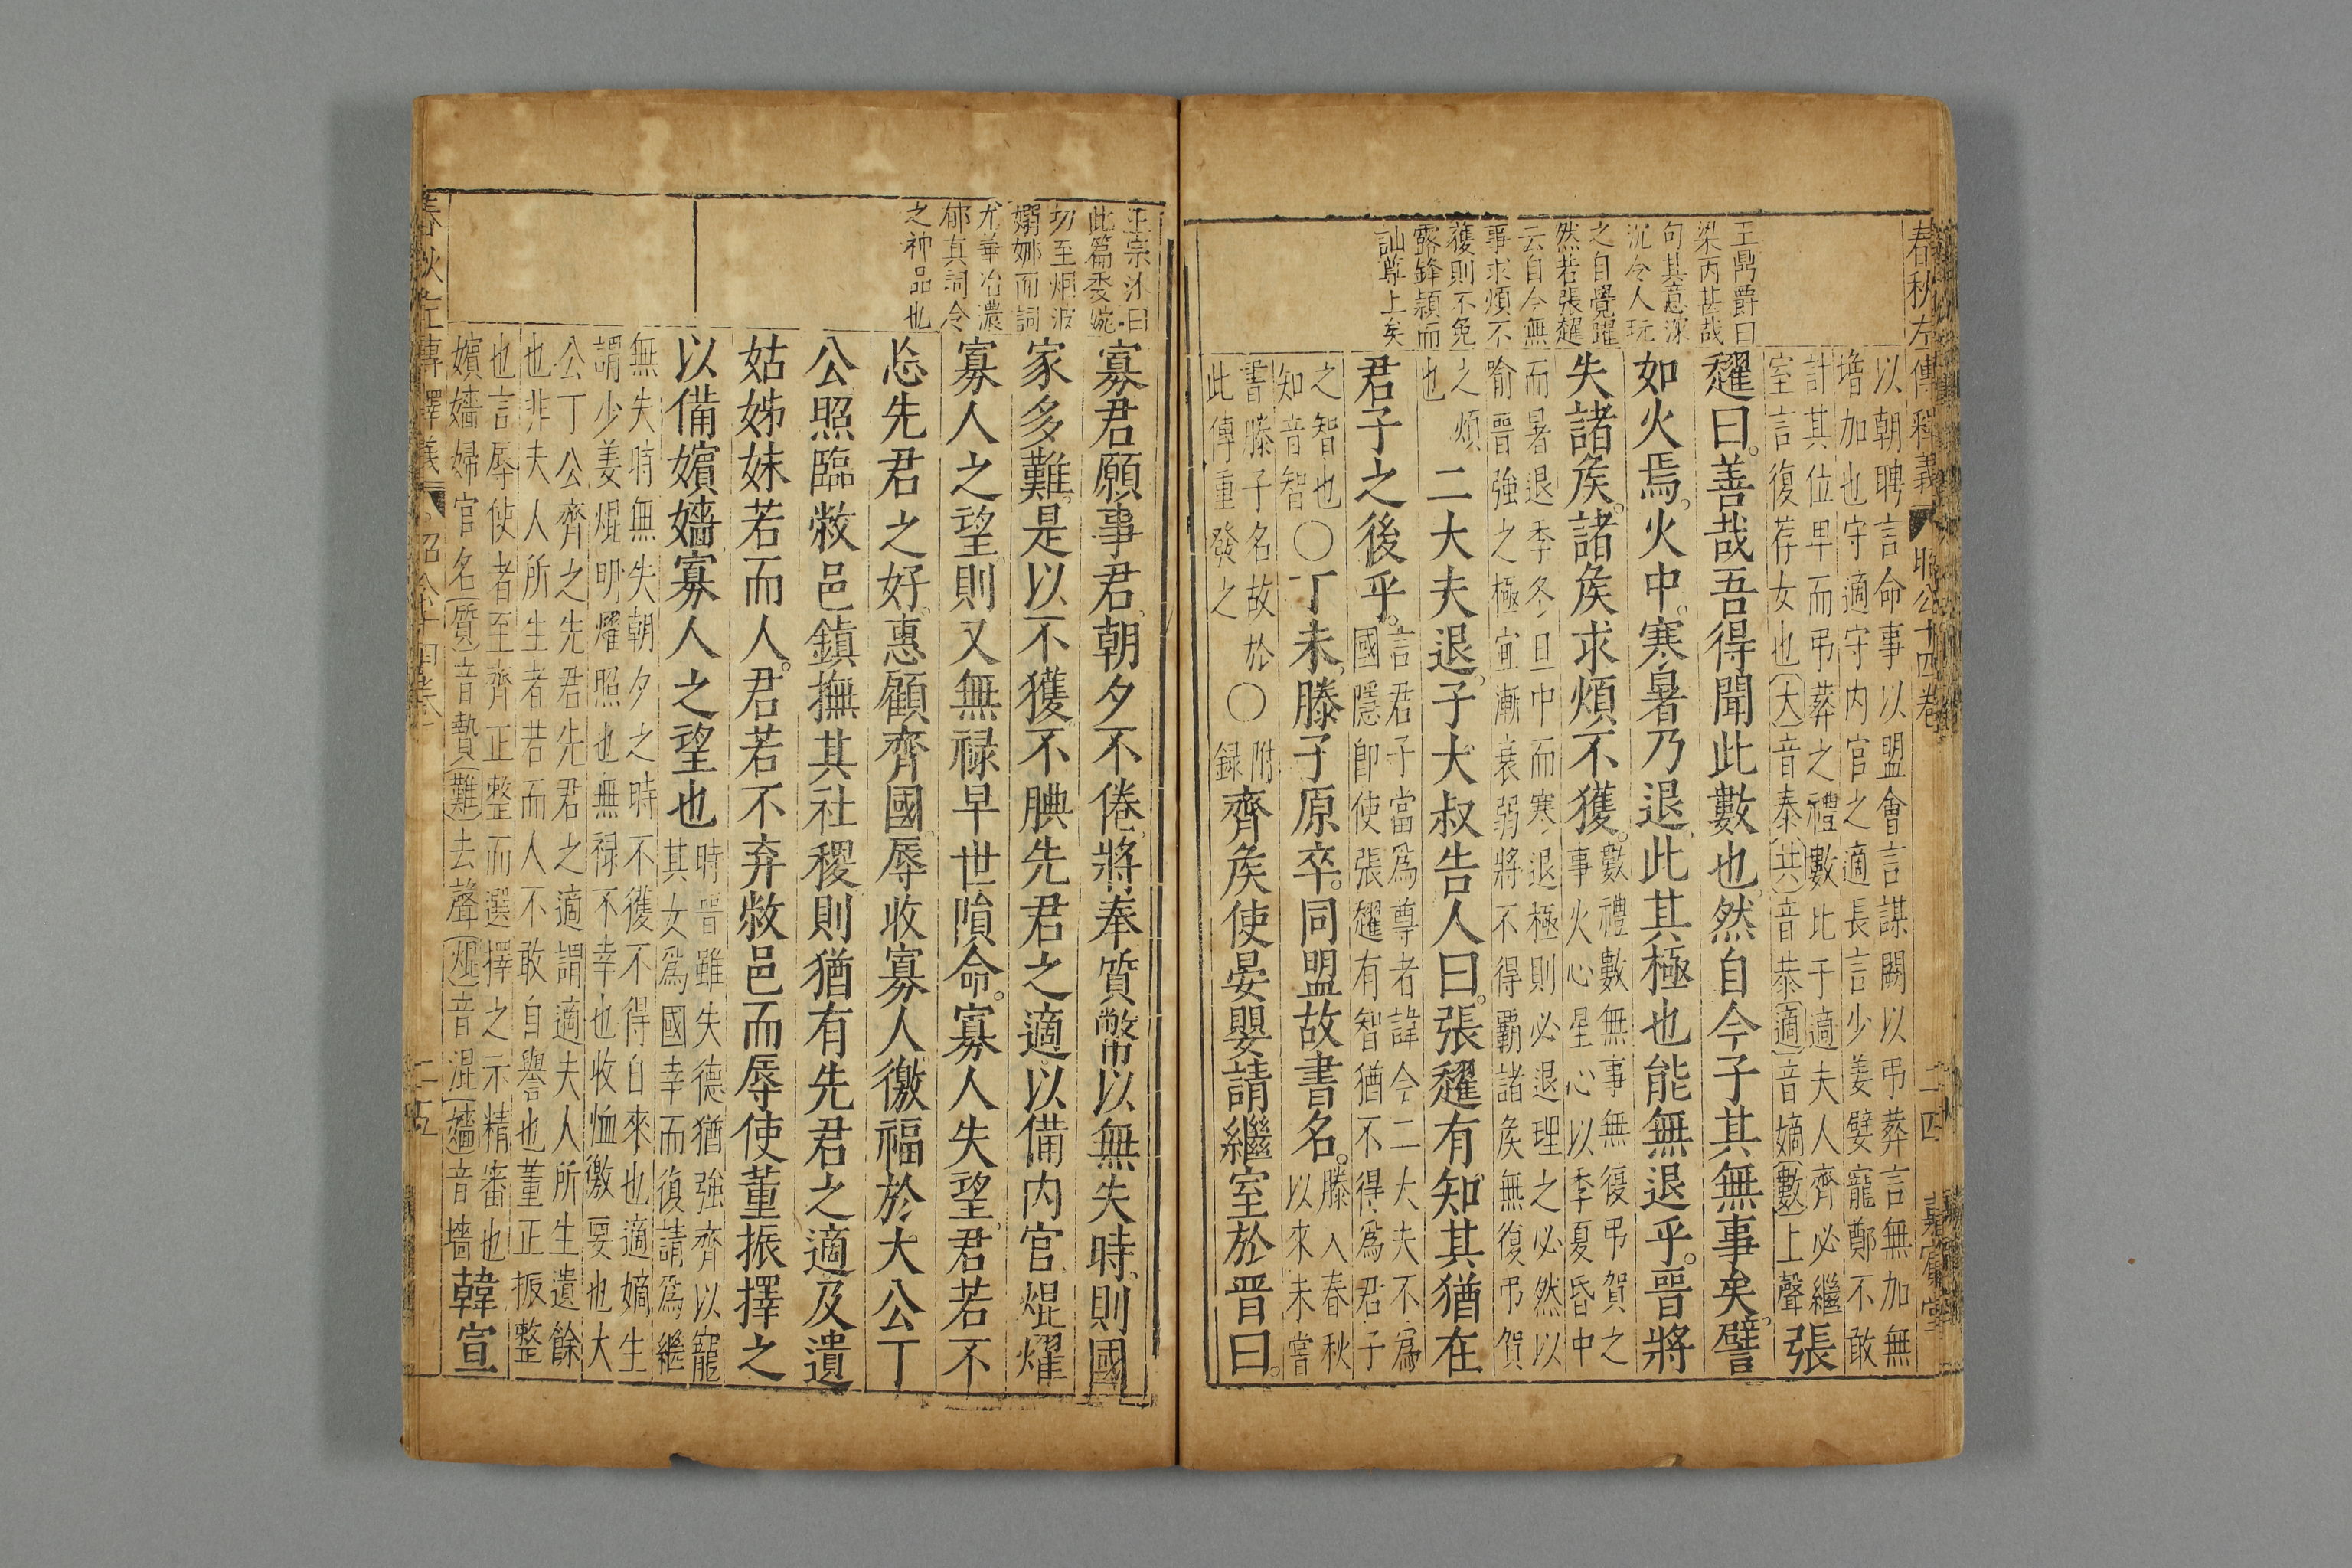 春秋左傳釋義 昭公十四卷 二十四 嘉賓堂
王鼎爵曰
梁丙甚哉
句其意深
沉令人玩
之自覺躍
然若張趯
云自今無
事求煩不
獲則不免
露鋒穎而
訕尊上矣
以朝聘言命事以盟會言謀闕以弔葬言無加無
増加也守適守内官之適長言少姜嬖寵鄭不敢
計其位卑而弔葬之禮數比于適夫人齊必繼
室言復荐女也(大)音泰(共)音恭(適)音嫡(數)上聲張
趯曰善哉吾得聞此數也然自今子其無事矣譬
如火焉火中寒暑乃退此其極也能無退乎晉將
失諸矦諸矦求煩不獲數禮數無事無復弔賀之
事火心星心以季夏昏中
而暑退季冬旦中而寒退極則必退理之必然以
喻晉強之極宜漸衰弱將不得覇諸矦無復弔賀
之煩
也
二大夫退子大叔告人曰張趯有知其猶在
君子之後乎言君子當為尊者諱今二大夫不為
國隱卽使張趯有智猶不得為君子
之智也
知音智
○丁未滕子原卒同盟故書名滕入春秋
以來未嘗
書滕子名故於
此傳重發之
○附
録齊矦使晏嬰請繼室於晉曰
王宗沐曰
此篇委婉
切至烟波
嫋娜而詞
尤華冶濃
郁真詞令
之神品也
寡君願事君朝夕不倦將奉質幣以無失時則國
家多難是以不獲不腆先君之適以備内官焜燿
寡人之望則又無禄早世隕命寡人失望君若不
忘先君之好惠顧齊國辱收寡人徼福於大公丁
公照臨敝邑鎮撫其社稷則猶有先君之適及遺
姑姊妹若而人君若不弃敝邑而辱使董振擇之
以備嬪嬙寡人之望也時晉雖失德猶強齊以寵
其女為國幸而復請為繼
無失時無失朝夕之時不獲不得自來也適嫡生
謂少姜焜明燿照也無禄不幸也收恤徼要也大
公丁公齊之先君先君之適謂適夫人所生遺餘
也非夫人所生者若而人不敢自譽也董正振整
也言辱使者至齊正整而選擇之示精審也
嬪嬙婦官名(質)音贄(難)去聲(焜)音混(嬙)音墻韓宣
春秋左傳釋義 昭公十四卷 二十五